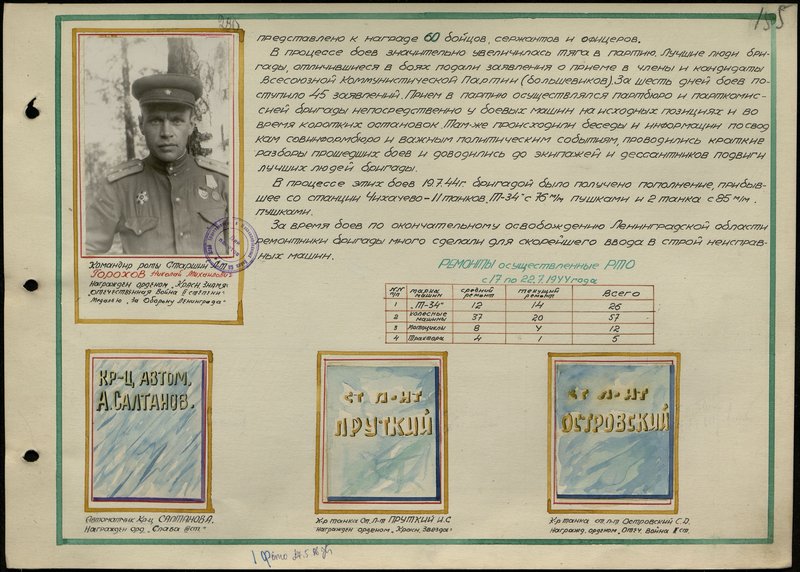 280
155
представлено к награде 60 бойцов, сержантов и офицеров.
В процессе боев значительно увеличилась тяга в партию. Лучшие люди бри-
гады, отличившиеся в боях подали заявления о приеме в члены и кандидаты
Всесоюзной Коммунистической Партии (большевиков). За шесть дней боев по-
ступило 45 заявлений. Прием в партию осуществлялся партбюро и парткомис-
сией бригады непосредственно у боевых машин на исходных позициях и во
время коротких остановок. Там-же происходили беседы и информации по свод
кам совинформбюро и важным политическим событиям, проводились краткие
разборы прошедших боев и доводились до экипажей и дессантников подвиги
лучших людей бригады.
В процессе этих боев 19.7.44г бригадой было получено пополнение, прибыв-
шее со станции Чихачево-11 танков „Т-34" с 76 м/м пушками и 2 танка с 85 м/м.
пушками.
За время боев по окончательному освобождению Ленинградской области
ремонтники бригады много сделали для скорейшего ввода в строй неисправ-
ных машин.
Командир роты Старший Л-т
Горохов Николай Михайлович
Награжден орденом „Красн. Знамя"
„Отечественная Война II степени"
Медалью „За Оборону Ленинграда"
Ремонты осуществленные РТО
с 17 по 22.7.1944 года
№№ п/п марка машин средний ремонт текущий ремонт Всего
1 „Т-34" 12 14 26
2 Колесные машины 37 20 57
3 Мотоциклы 8 4 12
4 Трактора 4 1 5
КР-Ц АВТОМ.
А.САЛТАНОВ.
СТ Л-НТ
ПРУТКИЙ
СТ Л-НТ
ОСТРОВСКИЙ
Автоматчик Кр-ц САЛТАНОВ А.
Награжден орд. „Слава III ст."
К-р танка Ст. Л-т ПРУТКИЙ И.С
Награжден орденом „Красн. Звезда"
К-р танка ст. л-т Островский С.D.
Награжд. орденом „Отеч. Война II ст.
1 фото